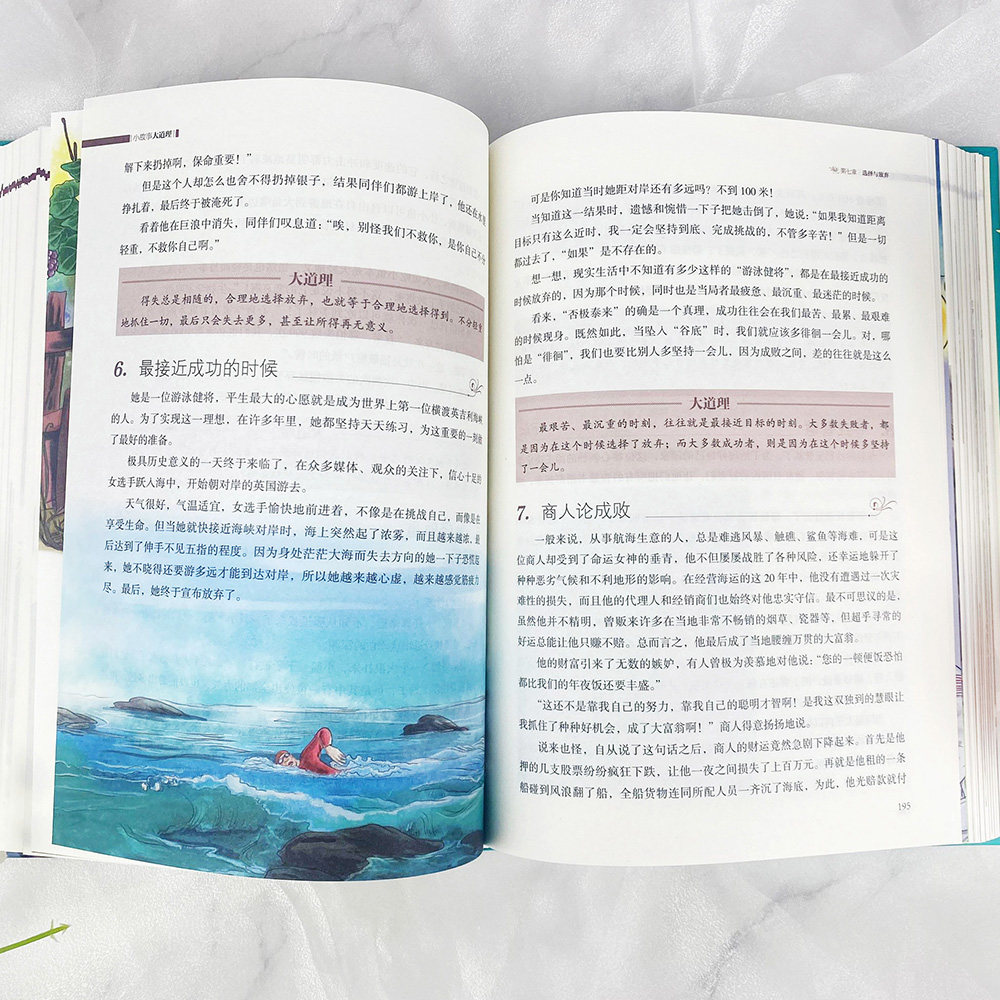 小故事大道理
解下来扔掉啊，保命重要！”
但是这个人却怎么也舍不得扔掉银子，结果同伴们都游上岸了，他还在水里
挣扎着，最后终于被淹死了。
看着他在巨浪中消失，同伴们叹息道：“唉，别怪我们不救你，是你自己不分
轻重，不救你自己啊。”
大道理
得失总是相随的，合理地选择放弃，也就等于合理地选择得到。不分轻重
地抓住一切，最后只会失去更多，甚至让所得再无意义。
6. 最接近成功的时候
她是一位游泳健将，平生最大的心愿就是成为世界上第一位横渡英吉利海峡
的人。为了实现这一理想，在许多年里，她都坚持天天练习，为这重要的一刻做
了最好的准备。
极具历史意义的一天终于来临了，在众多媒体、观众的关注下，信心十足的
女选手跃入海中，开始朝对岸的英国游去。
天气很好，气温适宜，女选手愉快地前进着，不像是在挑战自己，而像是在
享受生命。但当她就快接近海峡对岸时，海上突然起了浓雾，而且越来越浓、最
后达到了伸手不见五指的程度。因为身处茫茫大海而失去方向的她一下子恐慌起
来，她不晓得还要游多远才能到达对岸，所以她越来越心虚，越来越感觉筋疲力
尽。最后，她终于宣布放弃了。
第七章 选择与放弃
可是你知道当时她距对岸还有多远吗？不到 100 米！
当知道这一结果时，遗憾和惋惜一下子把她击倒了，她说：“如果我知道距离
目标只有这么近时，我一定会坚持到底、完成挑战的，不管多辛苦！”但是一切
都过去了，“如果”是不存在的。
想一想，现实生活中不知道有多少这样的“游泳健将”，都是在最接近成功的
时候放弃的，因为那个时候，同时也是当局者最疲惫、最沉重、最迷茫的时候。
看来，“否极泰来”的确是一个真理，成功往往会在我们最苦、最累、最艰难
的时候现身。既然如此，当坠入“谷底”时，我们就应该多徘徊一会儿。对，哪
怕是“徘徊”，我们也要比别人多坚持一会儿，因为成败之间，差的往往就是这么
一点。
大道理
最艰苦、最沉重的时刻，往往就是最接近目标的时刻。大多数失败者，都
是因为在这个时候选择了放弃；而大多数成功者，则是因为在这个时候多坚持
了一会儿。
7. 商人论成败
一般来说，从事航海生意的人，总是难逃风暴、触礁、鲨鱼等海难，可是这
位商人却受到了命运女神的垂青，他不但屡屡战胜了各种风险，还幸运地躲开了
种种恶劣气候和不利地形的影响。在经营海运的这 20 年中，他没有遭遇过一次灾
难性的损失，而且他的代理人和经销商们也始终对他忠实守信。最不可思议的是，
虽然他并不精明，曾贩来许多在当地非常不畅销的烟草、瓷器等，但超乎寻常的
好运总能让他只赚不赔。总而言之，他最后成了当地腰缠万贯的大富翁。
他的财富引来了无数的嫉妒，有人曾极为羡慕地对他说：“您的一顿便饭恐怕
都比我们的年夜饭还要丰盛。”
“这还不是靠我自己的努力，靠我自己的聪明才智啊！是我这双独到的慧眼让
我抓住了种种好机会，成了大富翁啊！”商人得意扬扬地说。
说来也怪，自从说了这句话之后，商人的财运竟然急剧下降起来。首先是他
押的几支股票纷纷疯狂下跌，让他一夜之间损失了上百万元。再就是他租的一条
船碰到风浪翻了船，全船货物连同所配人员一齐沉了海底，为此，他光赔款就付
195